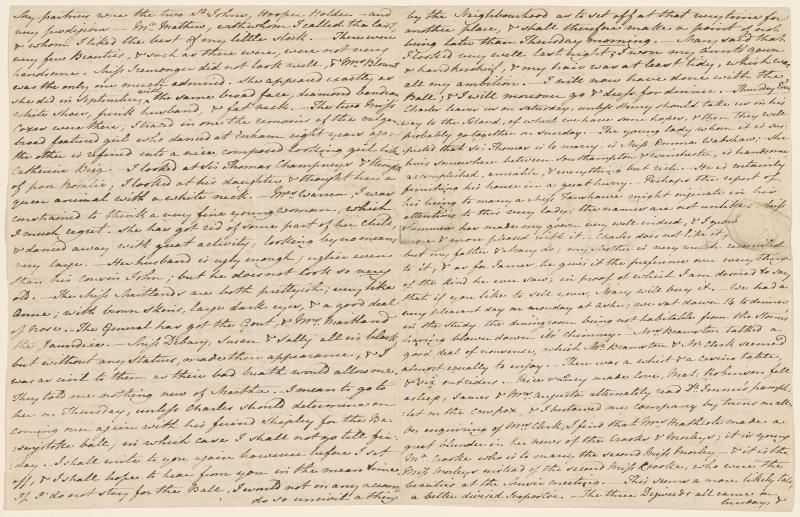 My partners were the two St Johns, Hooper Holder - and
very prodigious - Mr Mathew, with whom I called the last,
& whom I liked the best of my little stock. - There were
very few Beauties, & such as there were, were not very
handsome. Miss Iremonger did not look well, & Mrs Blount
was the only one much admired. She appeared exactly as
she did in September, with the same broad face, diamond bandeau,
white shoes, pink husband, & fat neck. - The two Miss
Coxes were there; I traced in one the remains of the vulgar,
broad featured girl who danced at Enham eight years ago; -
the other is refined into a nice, composed looking girl like
Catherine Bigg. - I looked at Sir Thomas Champneys & thought
of poor Rosalie; I looked at his daughter & thought her a
queer animal with a white neck. - Mrs Warren, I was
constrained to think a very fine young woman, which
I much regret. She has got rid of some part of her child,
& danced away with great activity, looking by no means
very large. - Her husband is ugly enough; uglier even
than his cousin John; but he does not look so very
old. - The Miss Maitlands are both prettyish; very like
Anne; with brown skins, large dark eyes, & a good deal
of nose. - The General has got the Gout, & Mrs Maitland
the Jaundice. - Miss Debary, Susan & Sally all in black,
but without any Statues, made their appearance, & I
was as civil to them as their bad breath would allow me.
They told me nothing new of Martha. I mean to go to
her on Thursday, unless Charles should determine on
coming over again with his friend Shipley for the Ba-
singstoke ball, in which case I shall not go till fri-
day. - I shall write to you again however before I set
off, & I shall hope to hear from you in the mean time.
If I do not stay for the Ball, I would not on any account
do so uncivil a thing
by the Neighbourhood as to set off at that very time for
another place, & shall therefore make a point of not
being later than Thursday morning. - Mary said that
I looked very well last night; I wore my aunt's gown
& handkerchief, & my hair was at least tidy, which was
all my ambition. - I will now have done with the
Ball; & I will moreover go & dress for dinner. - Thursday Eveng
Charles leaves us on saturday, unless Henry should take us in his
way to the Island, of which we have some hopes, & then they will
probably go together on sunday. - The young lady whom it is sus-
pected that Sir Thomas is to marry, is Miss Emma Wabshaw; - she
lives somewhere between Southampton & Winchester, is handsome,
accomplished, amiable, & everything but rich. - He is certainly
finishing his house in a great hurry. - Perhaps the report of
his being to marry a Miss Fanshawe might originate in his
attentions to this very lady; the names are not unlike. - Miss
Summers has made my gown very well indeed, & I grow
more & more pleased with it. - Charles does not like it,
but my father & Mary do; my Mother is very much reconciled
to it, & as for James he gives it the preference over everything
of the kind he ever saw; in proof of which I am desired to say
that if you like to sell yours, Mary will buy it. - We had a
very pleasant day on monday at Ashe; we sat down 14 to dinner
in the study, the dining room being not habitable from the Storm's
having blown down its chimney. - Mrs Bramston talked a
good deal of nonsense, which Mr Bramston & Mr Clerk seemed
almost equally to enjoy. - There was a whist & a casino table,
& six outsiders. - Rice & Lucy made love, Mat: Robinson fell
asleep, James & Mrs Augusta alternately read Dr Jenner's pamph-
let on the cow pox, & I bestowed my company by turns on all.
On enquiring of Mrs Clerk, I find that Mrs Heathcote made a
great blunder in her news of the Crooks & Morleys; it is young
Mr Crooke who is to marry the second Miss Morley - & it is the
Miss Morleys instead of the second Miss Crooke, who were the
beauties at the Music meeting. - This seems a more likely tale,
a better devised Impostor. - The three Digweeds all came on
tuesday, &